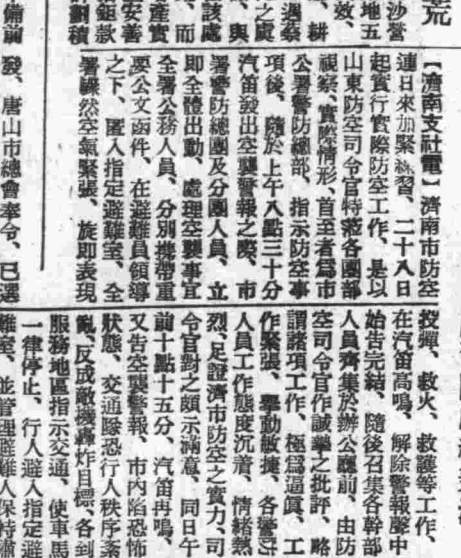 荒
沙營
地五
效、
、耕
之處
、與
該處
、而
產實
安善
組款
劃積
備前
【濟南支社電】濟南市防空
連日來加緊練習、二十八日
起實行實際防空工作、是以
山東防空司令官特蒞各團部
視察、實際情形、首至者爲市
公署警防總部、指示防空事
項後、隨於上午八點三十分
汽笛發出空襲警報之際、市
署警防總團及分團人員、立
即全體出動、處理空襲事宜
全署公務人員、分別携帶重
要公文函件、在避難員領導
之下、匿入指定避難室、全
署驟然空氣緊張、旋即表現
發、唐山市總會奉令、已選
投彈、救火、救護等工作、
在汽笛高鳴、解除警報聲中
始告完結、隨後召集各幹部
人員齊集於辦公廳前、由防
空司令官作誠摯之批評、略
謂諸項工作、極爲逼眞、工
作緊張、舉動敏捷、各警防
人員工作態度沉着、情緒熱
烈、足證濟市防空之實力、司
令官對之頗示滿意、同日午
前十點十五分、汽笛再鳴、
又告空襲警報、市內陷恐怖
狀態、交通隊恐行人秩序紊
亂、反成敵機轟炸目標、各到
服務地區指示交通、使車馬
一律停止、行人避入指定避
難室、並管理避難人保持肅